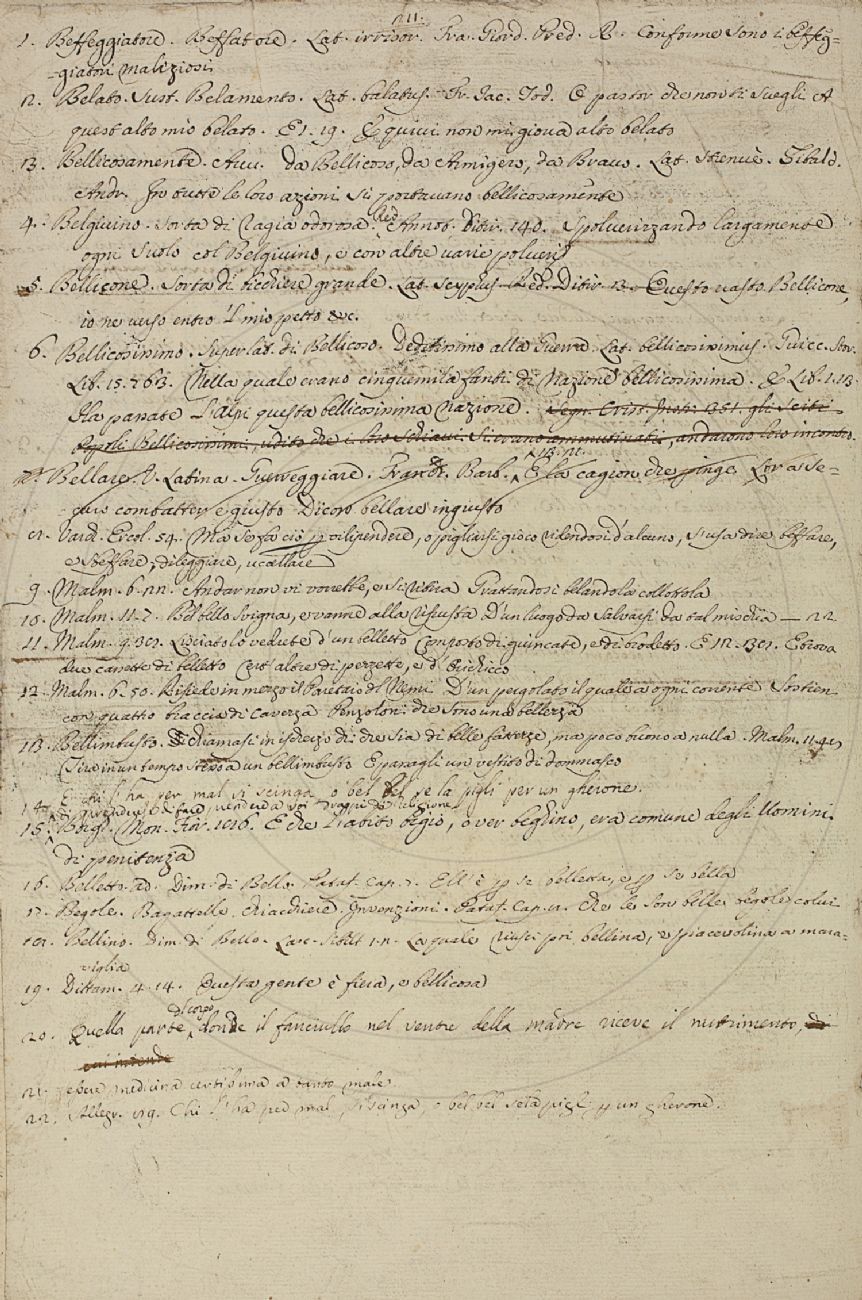 211.
1. Beffeggiatore. Beffatore. Lat. irrisor. Fra. Giord. Pred. R. Conforme sono i beffeg=
=giatori maliziosi
2. Belato. Sust. Belamento. Lat. balatus. Fr. Jac. Tod. O pastor che non ti svegli A
quest'alto mio belato. E 1. 19. E quivi non mi giova alto belato
3. Bellicosamente. Avv. da Bellicoso, da Armigero, da Bravo. Lat. strenuè. Sibald.
Andr. In tutte le loro azioni si portavano bellicosamente
4. Belgivino. Sorta di ragia odorosa. Red. Annot. Ditir. 140. Spolverizzando largamente
ogni suolo col Belgivino, e con altre varie polveri
5. Bellicone. Sorta di bicchiere grande. Lat. scyphus. Red. Ditir. 13. Questo vasto Bellicone,
io ne verso entro 'l mio petto &c.
6. Bellicosissimo. Superlat. di Bellicoso. Deditissimo alla Guerra. Lat. bellicosissimus. Guicc. Stor.
Lib. 15. 763. Nella quale erano cinquemila fanti di Nazione bellicosissima. E Lib. 1. 13.
Ha passate l'alpi questa bellicosissima Nazione. Segn. Crist. Instr. 351. gli Sciti
Popoli Bellicosissimi, udito che i loro Schiavi si erano ammutinati, andarono loro incontro.
7. Bellare. V. Latina. Guerreggiare. Franc. Barb. E la cagion che pinge Lor a se=
=guir combatter è giusto Dicoro bellare ingiusto
8. Varch. Ercol. 59. Ma se fa ciò per vilipendere, o pigliarsi gioco ridendosi d'alcuno, s'usa dire beffare,
e sbeffare, dileggiare, uccellare
9. Malm. 6. 22. Andar non vi vorrebbe, e si ritira Grattandosi belando la collottola
10. Malm. 11. 7. Bel bello svigna, e vanne alla rifiusta D'un luogo da salvarsi da tal mischia — 22
11. Malm. 9. 38. Lisciatolo vedute d'un belletto Composto di guincate, e di brodetto. E 12. 38. E trova
due cassette di belletto Cert'altre di pezzette, e d'Orichicco
12. Malm. 6. 50. Risiede in mezzo il Paretaio del Nemi D'un pergolato il quale a ogni corrente Sostien
con quattro braccia di Cavezza Penzoloni che sono una bellezza
13. Bellimbusto. Si chiamasi in ischerzo di che sia di belle fattezze, ma poco buono a nulla. Malm. 11. 49
Tira in un tempo stesso a un bellimbusto E paragli un vestito di dommasco
14. E chi l'ha per mal si scinga o bel bel se la pigli per un gherone.
15. Borg. Mon. Fior. 186. E che l'abito bigio, o ver beghino, era comune degli Uomini
di penitenza
16. Belletto. ad. Dim. di Bello. Pataf. Cap. 7. Ell'è per se belletta, e per se bella
17. Begole. Bagattelle, chiacchiere, Invenzioni. Pataf. Cap. Che le son belle begole colui
18. Bellino. Dim. di Bello. La quale riuscì poi bellina, e piacevolina a mara=
viglia
19. Dittam. 4. 14. Questa gente è fiera, e bellicosa
20. Quella parte di corpo, donde il fanciullo nel ventre della madre riceve il nutrimento,
21. esere medicina certissima a tanto male
22. Allegr. 219. Chi l'ha per mal, si scinga, o bel bel se la pigli per un gherone.